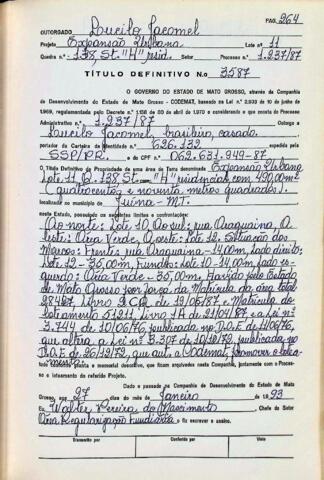 PAG. 264
OUTORGADO Lucilo Jacomel
Projeto Expansão Urbana Lote n.º 11
Quadra n.º 138, St. "H" resid. Setor Processo n.º 1.237/87
TÍTULO DEFINITIVO N.o 3587
O GOVERNO DO ESTADO DE MATO GROSSO, através da Companhia
de Desenvolvimento do Estado de Mato Grosso - CODEMAT, baseado na Lei n.º 2.933 de 10 de junho de
1.969, regulamentada pelo Decreto n.º 1.138 de 20 de abril de 1.970 e considerando o que consta do Processo
Administrativo n.º 1.237/87 Outorga a
Lucilo Jacomel, brasileiro, casado,
portador da Carteira de Identidade n.º 626.132 expedida pela
SSP/PR. e do CPF n.º 062.631.949-87
o Título Definitivo da Propriedade de uma área de Terra denominada Expansão Urbana
Lote 11 Q. 138 St. "H" residencial com 490,00m²
(Quatrocentos e noventa metros quadrados).
localizada no município de Juína - MT.
neste Estado, possuindo os seguintes limites e confrontações:
(Ao norte: Lote 10, Ao sul: rua Araguaina, A
leste: Área Verde, A oeste: Lote 12. Situação dos
Marcos: Frente: rua Araguaina - 14,00m, lado direito:
Lote 12 - 35,00m, Fundos: Lote 10 - 14,00m, lado es-
querdo: Área Verde - 35,00m, Havido pelo Estado
de Mato Grosso por força da Matrícula da área total
28487, Livro 2CQ, de 19/06/87 e Matrícula do
Loteamento 51211, Livro 1A de 21/04/87 e a Lei n.º
3.744 de 10/06/76, publicada no D.O.E de 11/06/76,
que altera a Lei n.º 3.307 de 18/12/72, publicada no
D.O.E. de 26/12/72, que aut. a Codemat, promover o lotea-
mento.
tudo conforme planta e memorial descritivo, que ficam arquivados nesta Companhia, juntamente com o Proces-
so e loteamento do referido Projeto.
Dado e passado na Companhia de Desenvolvimento do Estado de Mato
Grosso, aos 27 dias do mês de Janeiro de 1.9 93
Eu, Walter Pereira do Nascimento Chefe do Setor
Área Regularização Fundiária o fiz escrever e assino.
Transmitido por Conferido por Visto